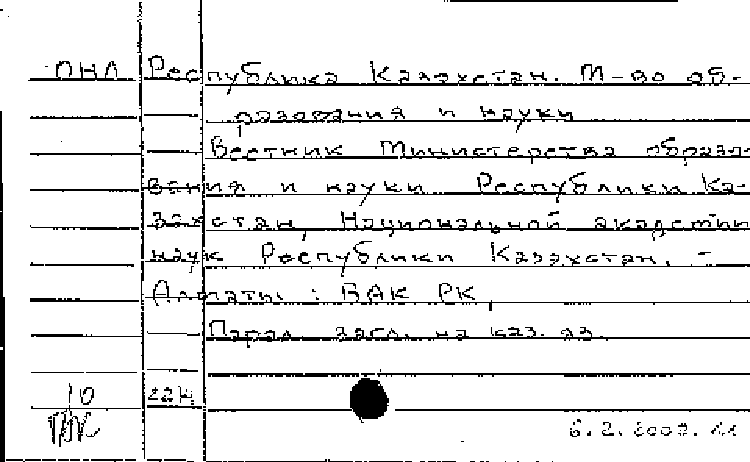 ОНЛ Республика Казахстан. М-во об-
разования и науки
Вестник Министерства образо-
вания и науки Республики Ка-
захстан, Национальной академии
наук Республики Казахстан. -
Алматы : ВАК РК,
Парал. загл. на каз. яз.
10 22Н
6.2.2000.